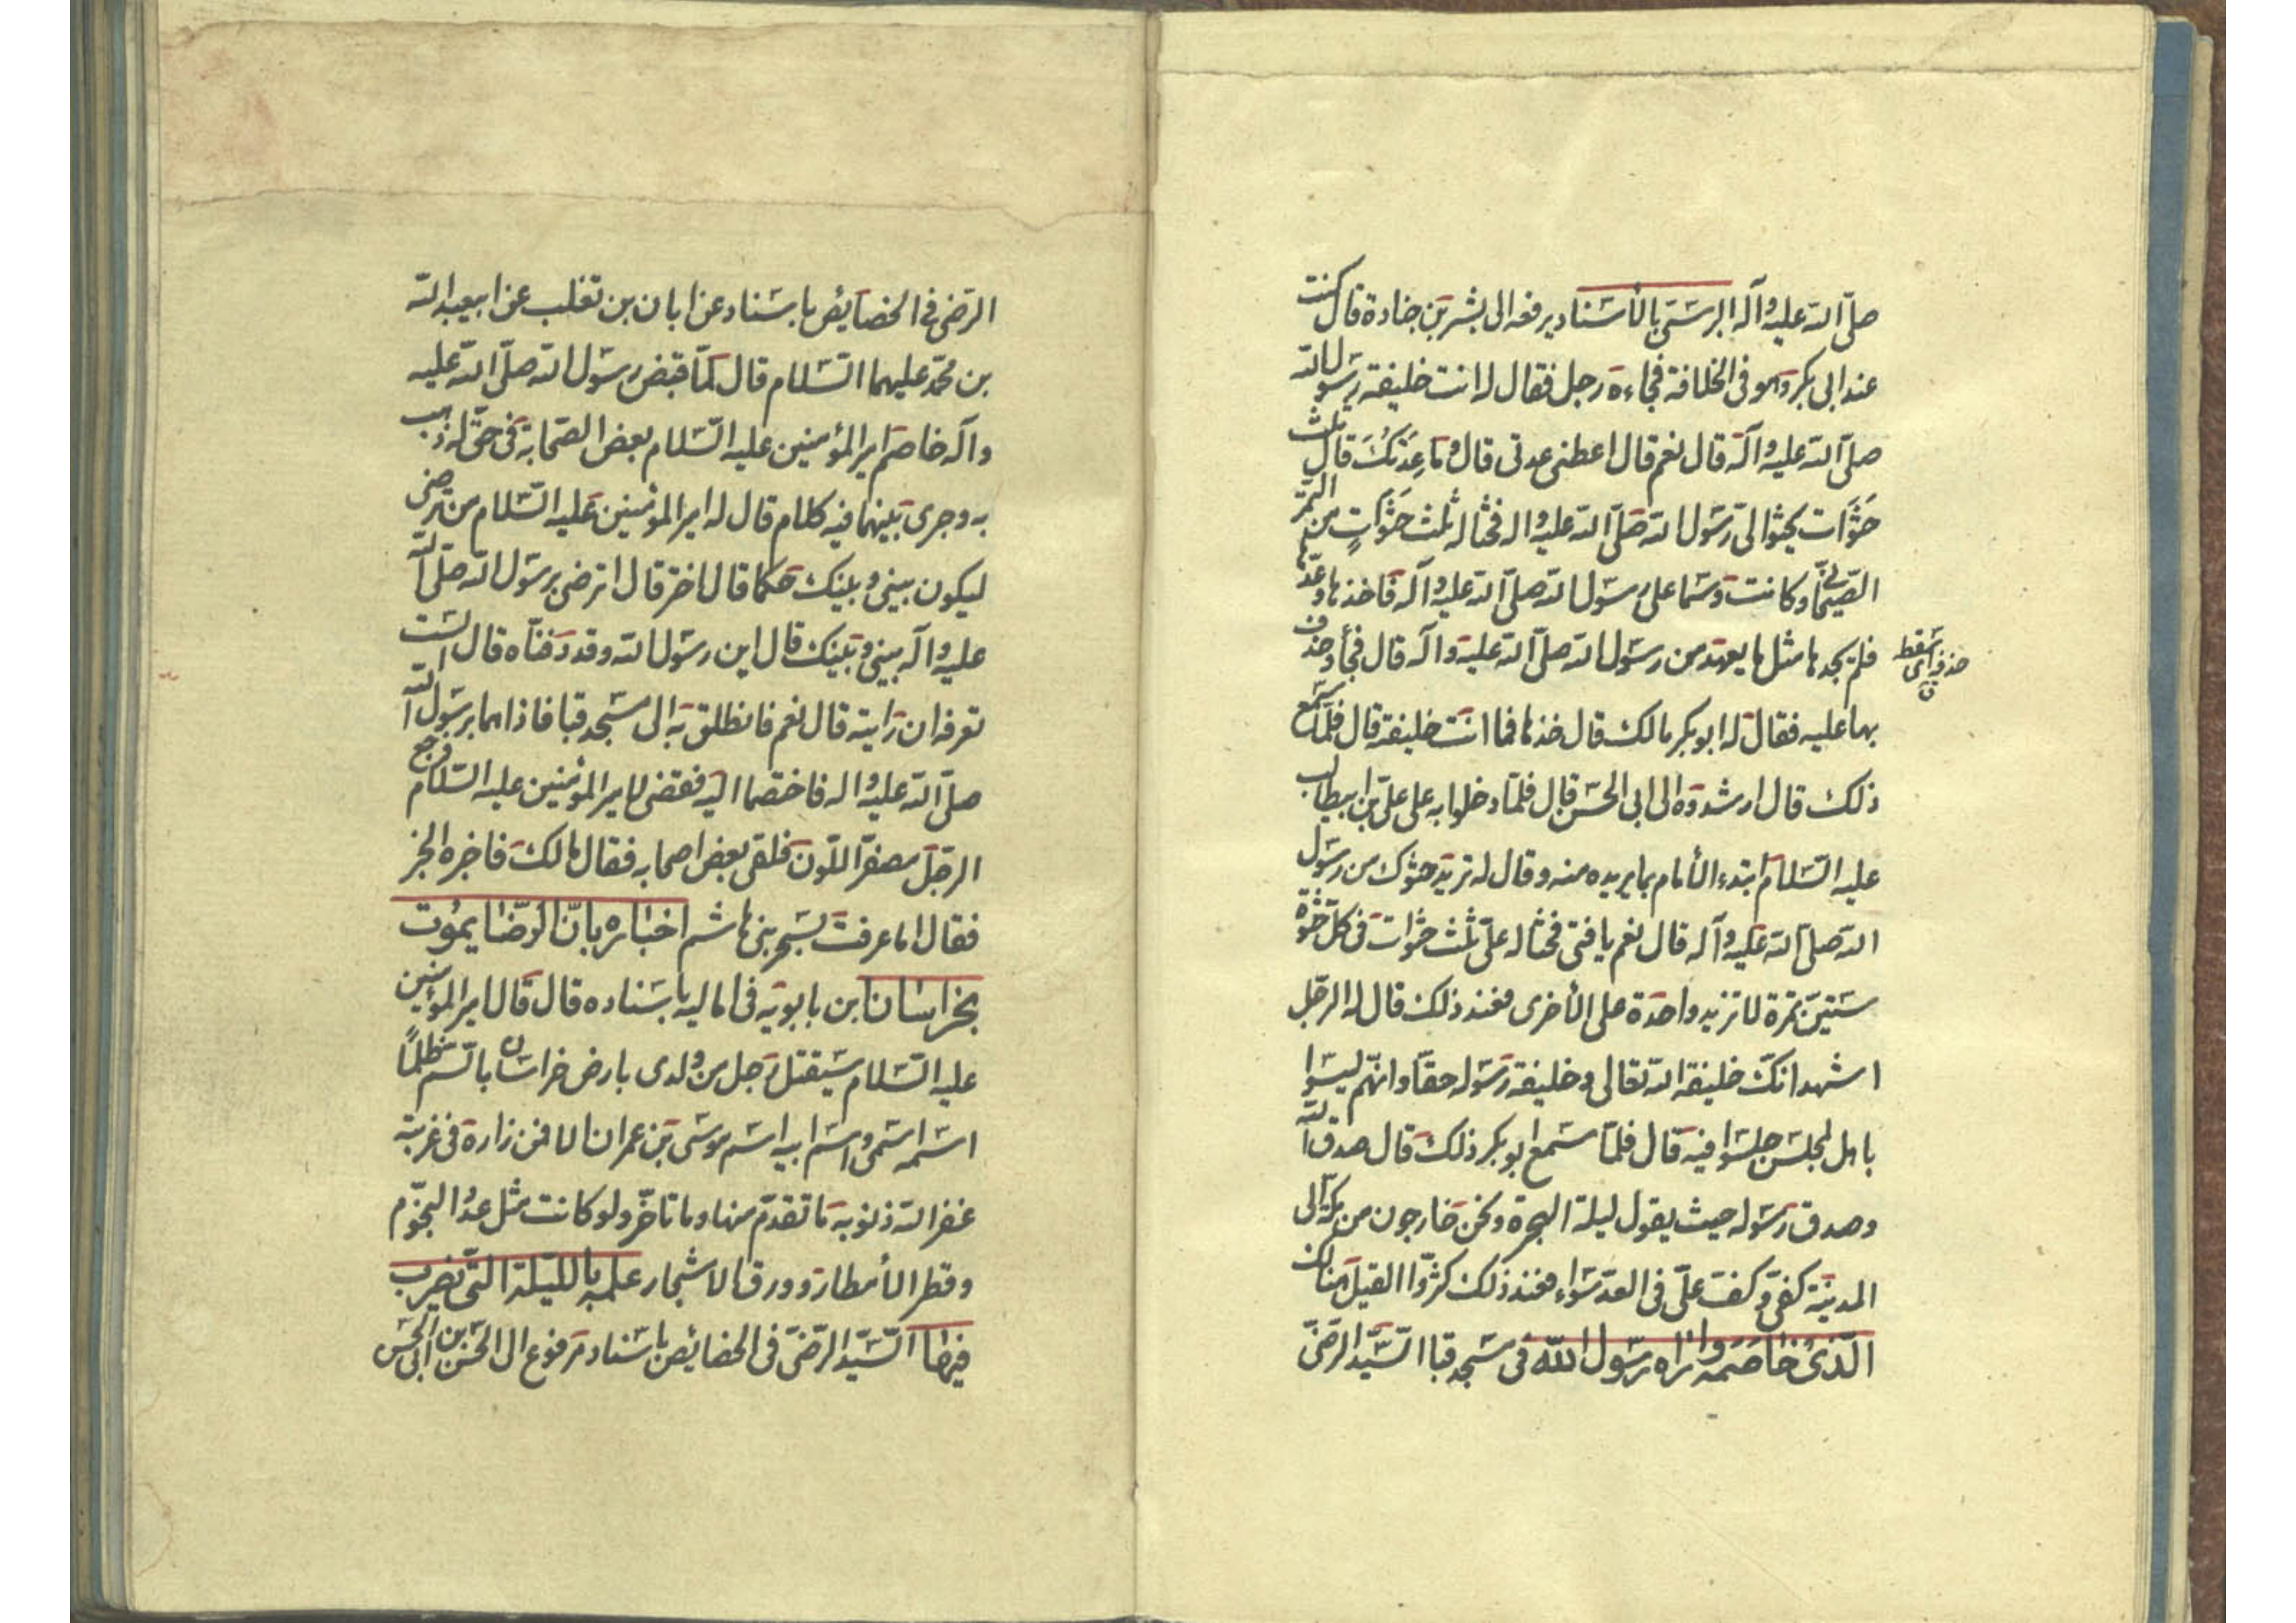 صلّى الله عليه وآله البرسى بالأسناد يرفعه الى بشر بن جنادة قال كنت
عند ابى بكر وهو فى الخلافة فجاءه رجل فقال له انت خليفة رسول الله
صلّى الله عليه وآله قال نعم قال اعطنى عدتى قال وما عِدَتُكَ قال ثلث
حَثَوات يحثوا لى رسول الله صلّى الله عليه واله فحثا له ثلث حثواتٍ من التمر
الصّيحانى وكانت رسما على رسول الله صلّى الله عليه وآله فاخذها وعدّها
فلم يجدها مثل ما يعهد من رسول الله صلّى الله عليه وآله قال فجاء وحذف
حذف اى سقط
بها عليه فقال له ابو بكر مالك قال خذها فما انت خليفته قال فلمّا سمع
ذلك قال ارشدوه الى ابى الحسن قال فلمّا دخلوا به على علىّ بن ابيطالب
عليه السّلام ابتدء الأمام بما يريده منه وقال له تريد حثوك من رسول
الله صلّى الله عليه وآله قال نعم يا فتى فحثا له علىّ ثلث حثوات فى كلّ حثوة
ستّين تمرة لا تزيد واحدة على الأخرى فعند ذلك قال له الرجل
اشهد انّك خليفة الله تعالى وخليفة رسوله حقّا وانّهم ليسوا
باهل لمجلس جلسوا فيه قال فلمّا سمع ابو بكر ذلك قال صدق الله
وصدق رسوله حيث يقول ليلة الهجرة ونحن خارجون من مكّة الى
المدينة كفّى وكفّ علىّ فى العدّ سواء فعند ذلك كثروا القيل هنالك
الّذى خاصمه واراه رسول الله فى مسجد قبا السّيد الرضىّ
الرّضى فى الخصايص باسناد عن ابان بن تغلب عن ابيعبد الله
بن محمّد عليهما السّلام قال لمّا قبض رسول الله صلّى الله عليه
وآله خاصم امير المؤمنين عليه السّلام بعض الصّحابة فى حقّ له ذهب
به وجرى بينهما فيه كلام قال له امير المؤمنين عليه السّلام من ترضى
ليكون بينى وبينك حكما قال اختر قال اترضى برسول الله صلّى الله
عليه وآله بينى وبينك قال اين رسول الله وقد دفنّاه قال الست
تعرفه ان رايته قال نعم فانطلق به الى مسجد قبا فاذا هما برسول الله
صلّى الله عليه واله فاختصما اليه فقضى لامير المؤمنين عليه السّلام فرجع
الرجل مصفرّ اللّون فلقى بعض اصحابه فقال مالك فاخبره الخبر
فقال اما عرفت سحر بنى هاشم اخباره بانّ الرّضا يموت
بخراسان ابن بابويه فى اماليه باسناده قال قال امير المؤمنين
عليه السّلام سيقتل رجل من ولدى بارض خراسان بالسّم ظلمًا
اسمه اسمى واسم ابيه اسم موسى بن عمران الا فمن زاره فى غربته
غفر الله ذنوبه ما تقدّم منها وما تاخّر ولو كانت مثل عدد النجوم
وقطر الأمطار وورق الاشجار علمه بالليلة الّتى يضرب
فيها السّيد الرّضىّ فى الخصائص باسناد مرفوع الى الحسن بن ابى الحسن